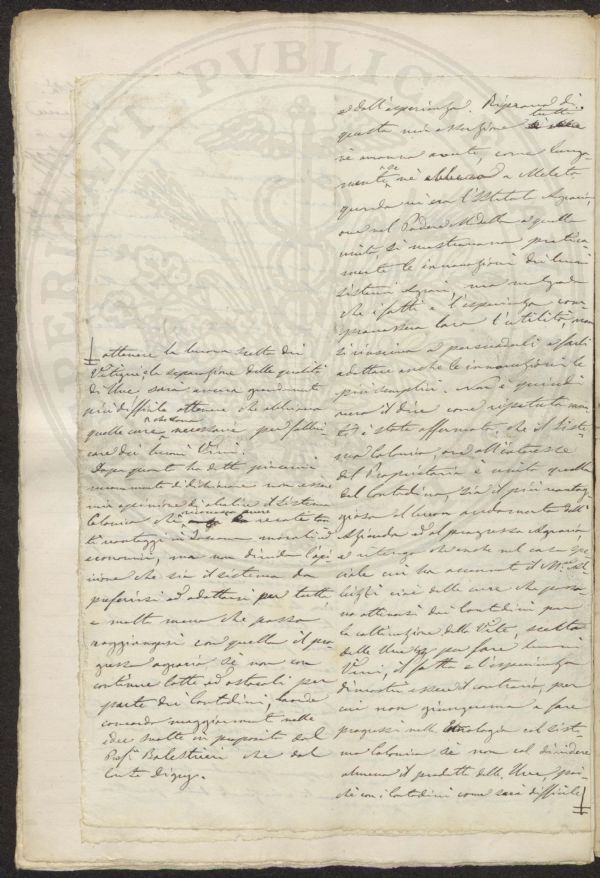 e dall'esperienza. Riprova di
questa mia assezione tutti
ne avranno avute, come lunga-
mente ne abbiamo a Meleto
quando vi era l'Istituto Agrario,
ove nel Podere Modello a quello
unito, si mostravano pratica-
mente le innovazioni dei buoni
sistemi Agrari, ma malgrado
che i fatti e l'esperienza com-
provassero loro l'utilità, non
si riusciva a persuaderli a farli
adottare anche le innovazioni le
più semplici. Non è quindi
vero il dire come ripetutamen-
te è stato affermato, che il Siste-
ma Colonico, ove all'interesse
del Proprietario è unito quello
del Contadino, sia il più vantag-
gioso al buon andamento dell'
Azienda ed al progresso Agrario,
e ritengo che anche nel caso spe-
ciale cui ha accennato il
cioè delle cure che posso-
no ottenersi dai Contadini per
la coltivazione della Vite, scelta
delle Uve per fare buoni
Vini, il fatto e l'esperienza
dimostri essere il contrario, per
cui non giungeremo a fare
progressi nell' Enologia col siste-
ma Colonico se non col dividere
almeno il prodotto delle Uve, poi-
chè con i Contadini come sarà difficile
ottenere la buona scelta dei
Vitigni, e la separazione delle qualità
di Uve sarà ancora grandemente
più difficile ottenere che abbiano
quelle cure necessarie per fabbri-
care dei buoni Vini.
Dopo quanto ho detto piacemi
nuovamente di dichiarare non essere
mia opinione di abolire il sistema
Colonico che recato tan-
ti vantaggi in Toscana morali ed
economici, ma non divido l'opi-
nione che sia il sistema da
preferirsi ed adottarsi per tutto
e molto meno che possa
raggiungersi con quello il pro-
gresso agrario se non con
continue lotte ed ostacoli per
parte dei Contadini, laonde
concordo maggiormente nelle
idee svolte in proposito dal
Prof. Balestrieri che dal
Conte Digny.